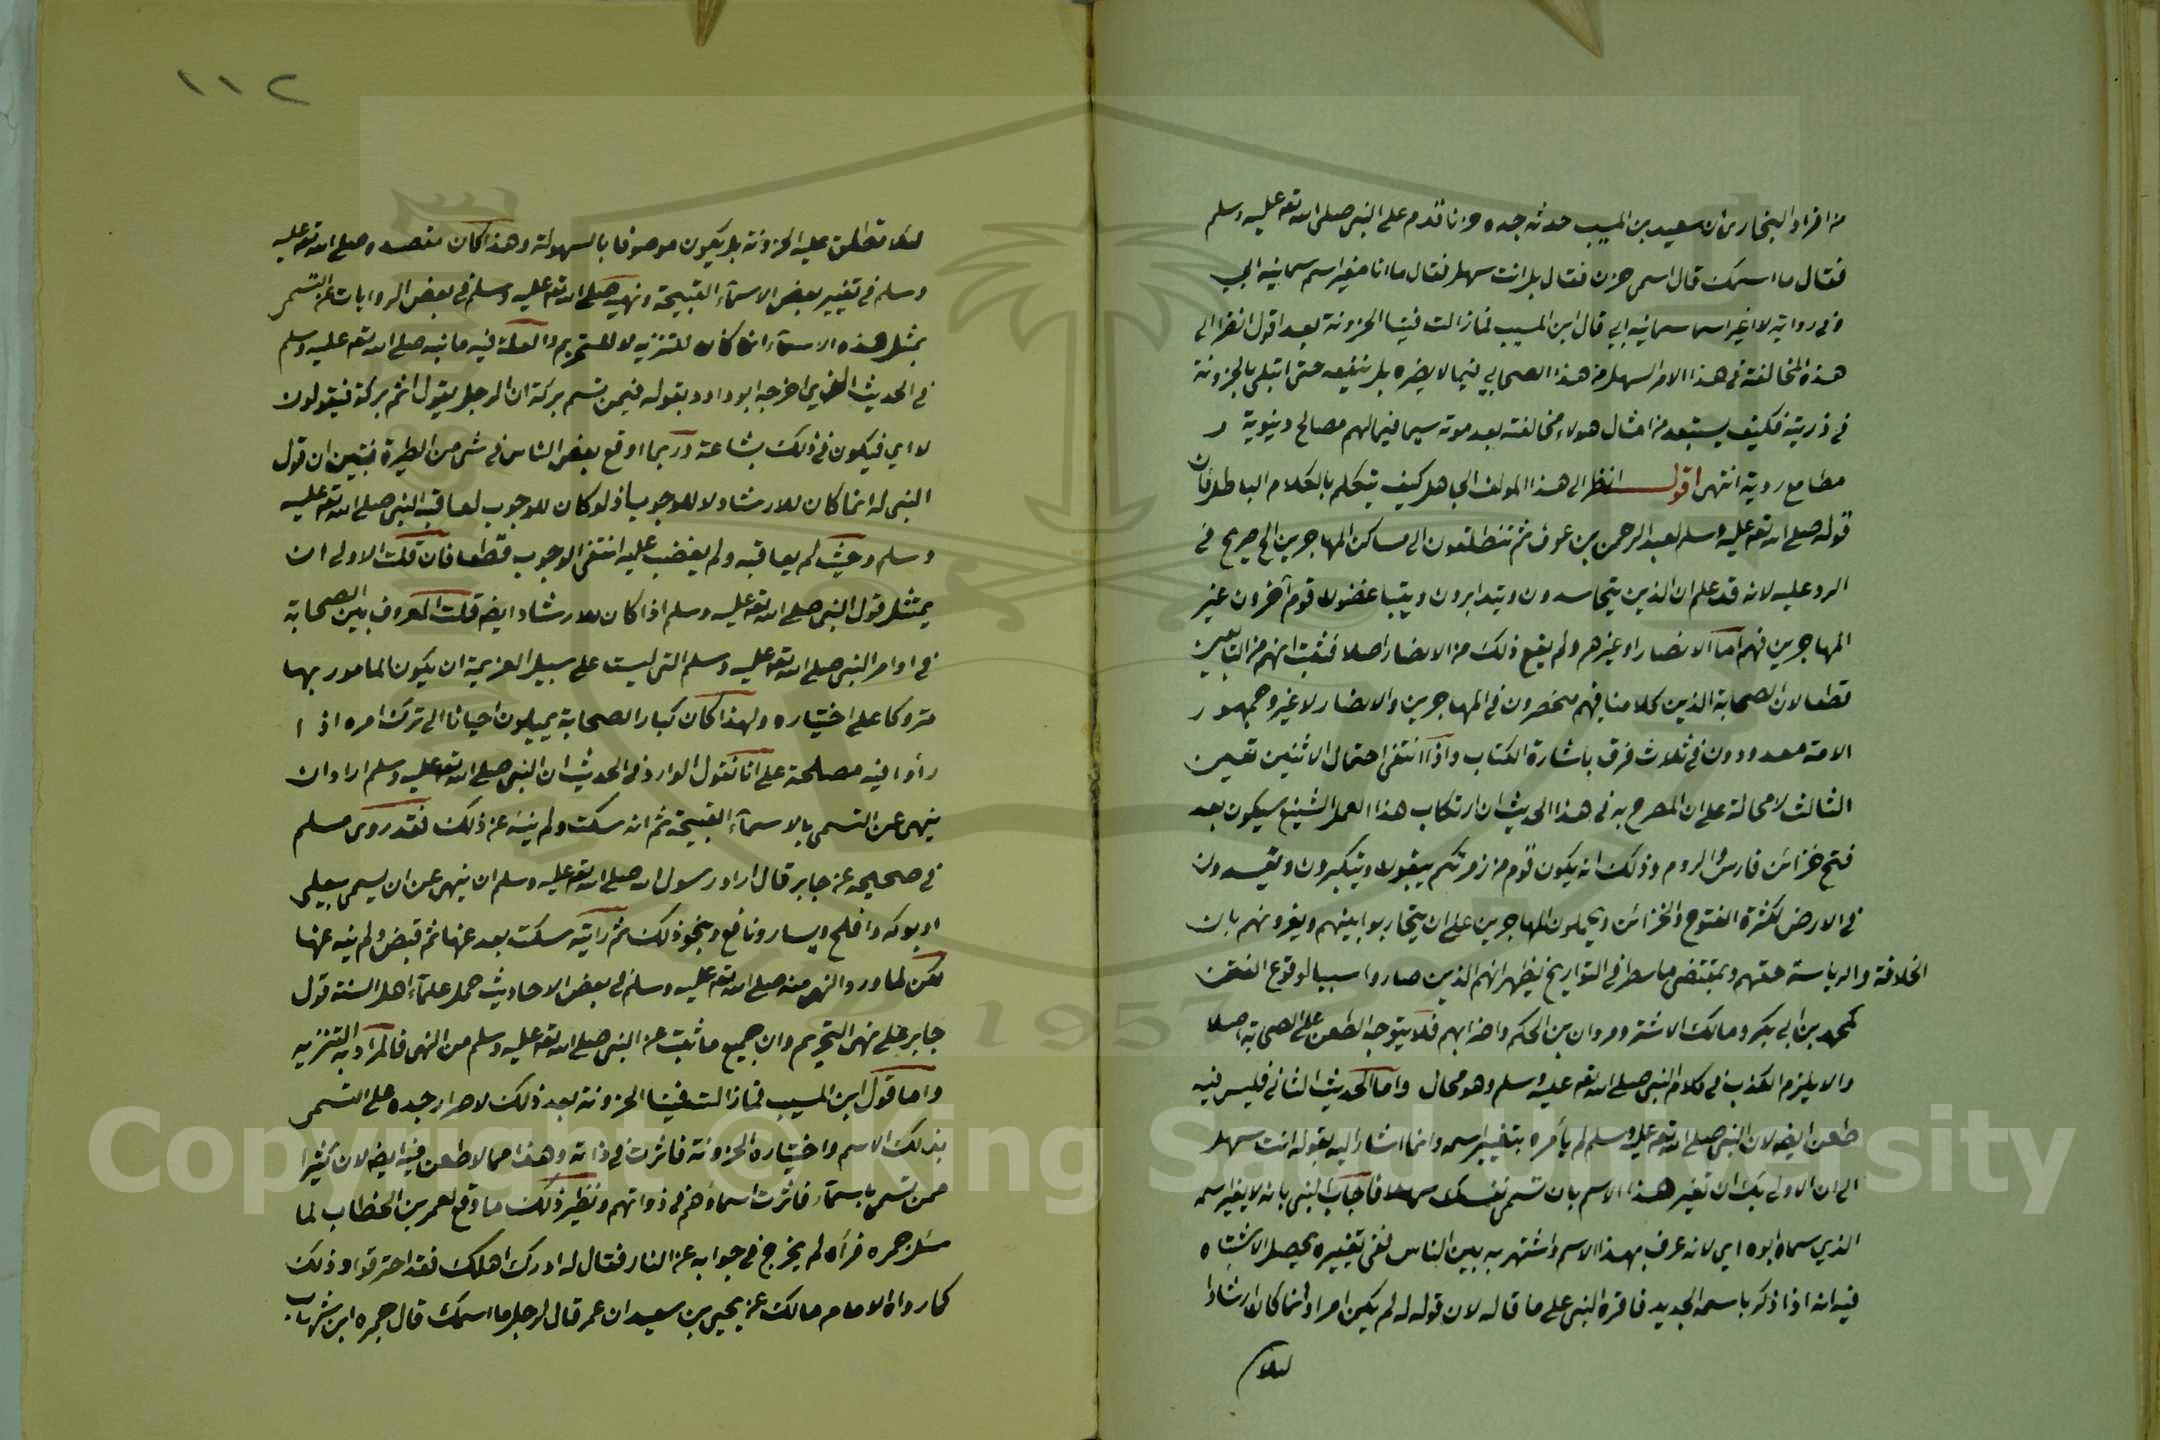 من افراد البخاري ان سعيد بن المسيب حدث جده حزنا قدم على النبي صلى الله تعه عليه وسلم
فقال ما اسمك قال اسمي حزن فقال بل انت سهل فقال ما انا مغير اسم سمانيه ابي
وفي رواية لا اغير اسما سمانيه ابي قال ابن المسيب فما زالت فينا الحزونة بعد اقول انظر الى
هذه المخالفة في هذا الامر السهل من هذا الصحابي فيما لا يضره بل ينفعه حتى ابتلي بالحزونة
في ذريته فكيف يستبعد من امثال هولاء مخالفته بعد موته سيما فيما لهم مصالح دنيوية و
مطامع ردية انتهى اقول انظر الى هذا المولف الجاهل كيف يتكلم بالكلام الباطل فان
قوله صلى الله تعه عليه وسلم لعبد الرحمن بن عوف ثم تنطلقون الى مساكن المهاجرين الخ صريح في
الرد عليه لانه قد علم ان الذين يتحاسدون ويتدابرون ويتباغضون قوم آخرون غير
المهاجرين فهم اما الانصار او غيرهم ولم يقع ذلك من الانصار اصلا فثبت انهم من التابعين
قطعا لان الصحابة الذين كلامنا فيهم منحصرون في المهاجرين والانصار لا غير وجمهور
الامة معدودون في ثلاث فرق باشارة الكتاب واذا انتفى احتمال الاثنين تعين
الثالث لا محالة على ان المصرح به في هذا الحديث ان ارتكاب هذا العمل الشنيع سيكون بعد
فتح خزائن فارس والروم وذلك انه يكون قوم من زمرتكم يبغون ويتكبرون ويفسدون
في الارض لكثرة الفتوح والخزائن ويحملون المهاجرين على ان يتحاربوا بينهم ويغرونهم بان
الخلافة والرياسة حقهم وبمقتضى ما سطر في التواريخ يظهر انهم الذين صاروا سببا لوقوع الفتن
كمحمد بن ابي بكر ومالك الاشتر ومروان بن الحكم واضرابهم فلا يتوجه الطعن على الصحابة اصلا
والا يلزم الكذب في كلام النبي صلى الله تعه عليه وسلم وهو محال واما الحديث الثاني فليس فيه
طعن ايضا لان النبي صلى الله تعه عليه وسلم لم يأمره بتغيير اسمه وانما اشار اليه بقوله انت سهل
الى ان الاولى بك ان تغير هذا الاسم بان تسمي نفسك سهلا فاجاب النبي بانه لا يغير اسمه
الذي سماه ابوه اي لانه عرف بهذا الاسم واشتهر به بين الناس ففي تغييره يحصل الاشتباه
فيه انه اذا ذكر باسمه الجديد فاقره النبي على ما قاله لان قوله له لم يكن امرا وانما كان ارشادا
لئلا
١١٢
لئلا تطلق عليه الحزونة بل يكون موصوفا بالسهولة وهذا كان مقصده صلى الله تعه عليه
وسلم في تغيير بعض الاسماء القبيحة ونهيه صلى الله تعه عليه وسلم في بعض الروايات عن التسمي
بمثل هذه الاسماء انما كان للتنزيه لا للتحريم والعلة فيه ما نبه صلى الله تعه عليه وسلم
في الحديث الذي اخرجه ابو داود بقوله فيمن تسمى بركة ان الرجل يقول اثم بركة فيقولون
لا اي فيكون في ذلك بشاعة وربما اوقع بعض الناس في شئ من الطيرة فتبين ان قول
النبي له انما كان للارشاد لا للوجوب اذ لو كان للوجوب لعاقبه النبي صلى الله تعه عليه
وسلم وحيث لم يعاقبه ولم يغضب عليه انتفى الوجوب قطعا فان قلت الاولى ان
يمتثل قول النبي صلى الله تعه عليه وسلم اذا كان للارشاد ايضا قلت المعروف بين الصحابة
في اوامر النبي صلى الله تعه عليه وسلم التي ليست على سبيل العزيمة ان يكون المامور بها
متروكا على اختياره ولهذا كان كبار الصحابة يميلون احيانا الى ترك امره اذا
رأوا فيه مصلحة على انا نقول الوارد في الحديث ان النبي صلى الله تعه عليه وسلم اراد ان
ينهى عن التسمي بالاسماء القبيحة ثم انه سكت ولم ينه عن ذلك فقد روى مسلم
في صحيحه عن جابر قال اراد رسول الله صلى الله تعه عليه وسلم ان ينهى عن ان يسمى بيعلى
او بوكه وافلح ويسار ونافع وبنحو ذلك ثم رأيته سكت بعد عنها ثم قبض ولم ينه عنها
لكن لما ورد النهي منه صلى الله تعه عليه وسلم في بعض الاحاديث حمل علماء اهل السنة قول
جابر على نهي التحريم وان جميع ما ثبت عن النبي صلى الله تعه عليه وسلم من النهي فالمراد به التنزيه
واما قول ابن المسيب فما زالت فينا الحزونة بعد ذلك لاصرار جده على التسمي
بذلك الاسم واختياره الحزونة فاثرت في ذاته وهذا مما لا طعن فيه ايضا لان كثيرا
ممن تسمى باسماء فاثرت اسماؤهم في ذواتهم ونظير ذلك ما وقع لعمر بن الخطاب لما
سئل جمره فرآه لم يخرج في جوابه عن النار فقال له ادرك اهلك فقد احترقوا وذلك
كما رواه الامام مالك عن يحيى بن سعيد ان عمر قال لرجل ما اسمك قال جمره ابن شهاب
1957
Copyright © King Saud University